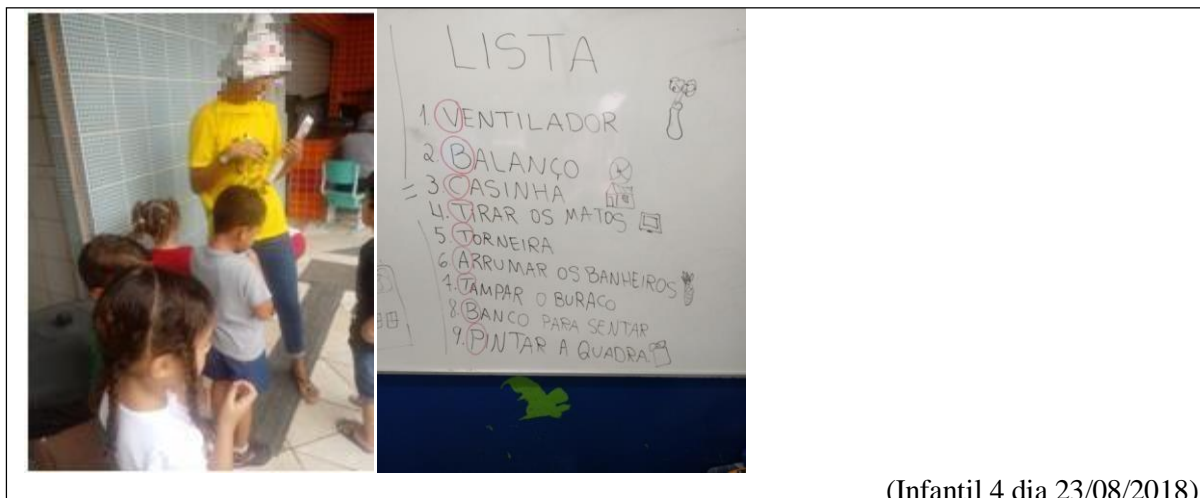 LISTA
1. VENTILADOR
2. BALANÇO
= 3 CASINHA
4. TIRAR OS MATOS
5. TORNEIRA
6 ARRUMAR OS BANHEIROS
7. TAMPAR O BURACO
8. BANCO PARA SENTAR
9. PINTAR A QUADRA
(Infantil 4 dia 23/08/2018)